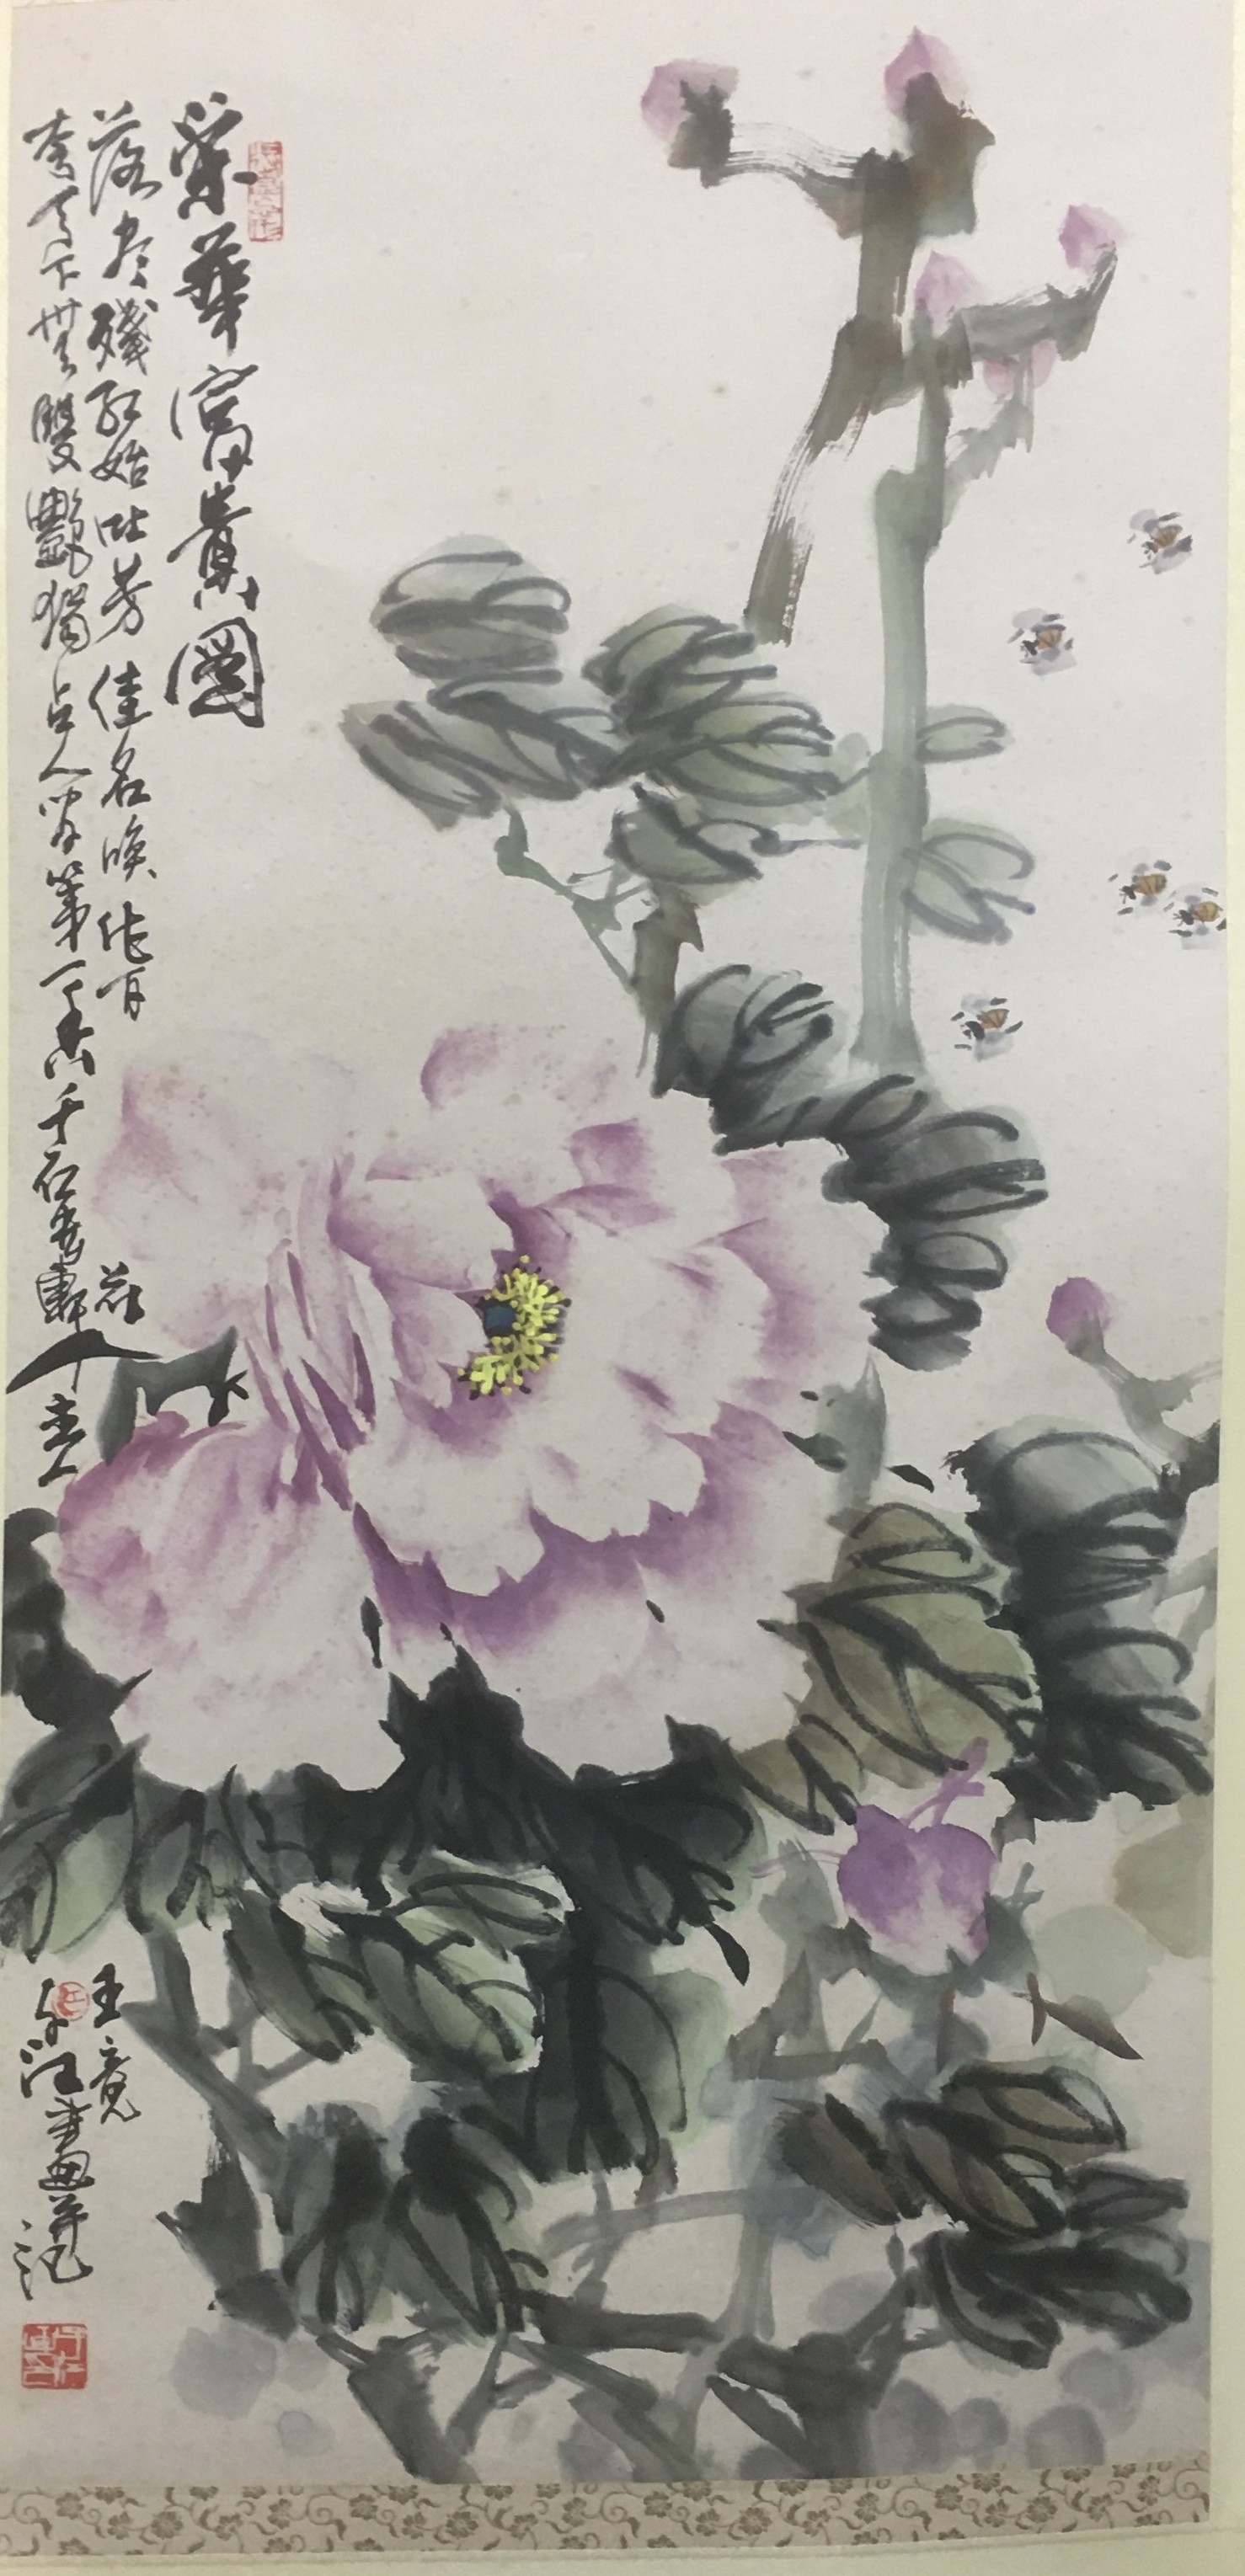 榮華富貴圖
落盡殘紅始吐芳佳名喚作百花王竟
夸天下無雙艷獨占人間第一香千石書軒主人 江畫并记